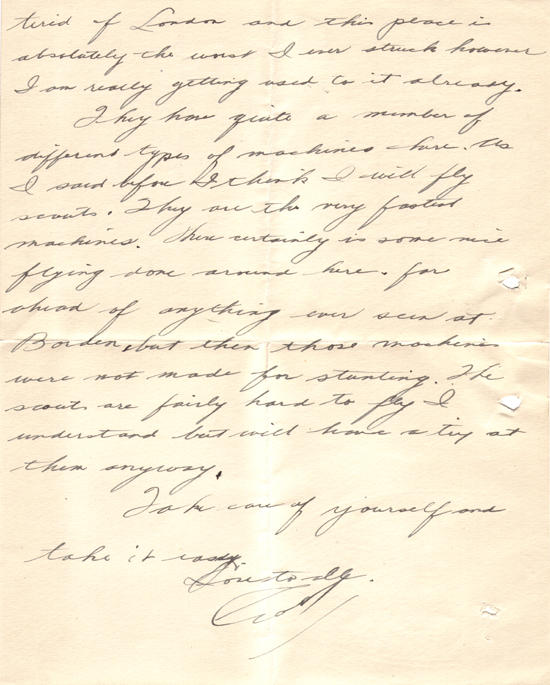 tired of London and this place is
absolutely the worst I ever struck however
I am really getting used to it already.
They have quite a number of
different types of machines here. As
I said before I think I will fly
scouts. They are the very fastest
machines. There certainly is some nice
flying done around here. far
ahead of anything ever seen at
Borden, but then those machines
were not made for stunting. The
scouts are fairly hard to fly I
understand but will have a try at
them anyway.
Take care of yourself and
take it easy.
Love to all.